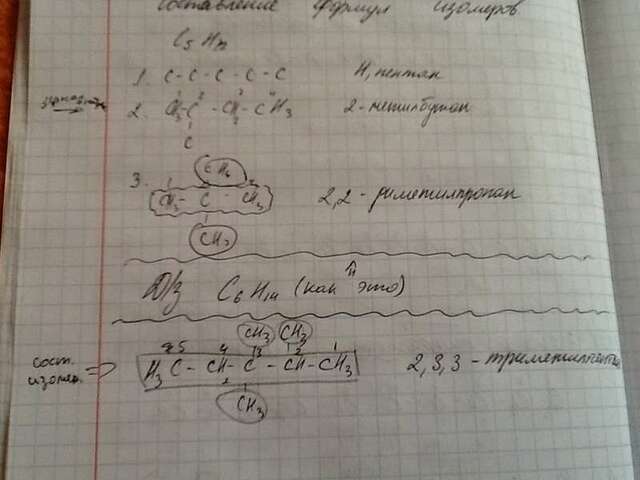 составление формул изомеров
C5H12
1. C - C - C - C - C Н, пентан
2. CH3 - C - CH2 - CH3 2-метилбутан
C
CH3
3. CH3 - C - CH3 2,2-диметилпропан
CH3
Д/з C6H14 (как это)
CH3 CH3
5 4 3 2 1
сост. изомер. => H3C - CH2 - C - CH - CH3 2,3,3-триметилпентан
CH3